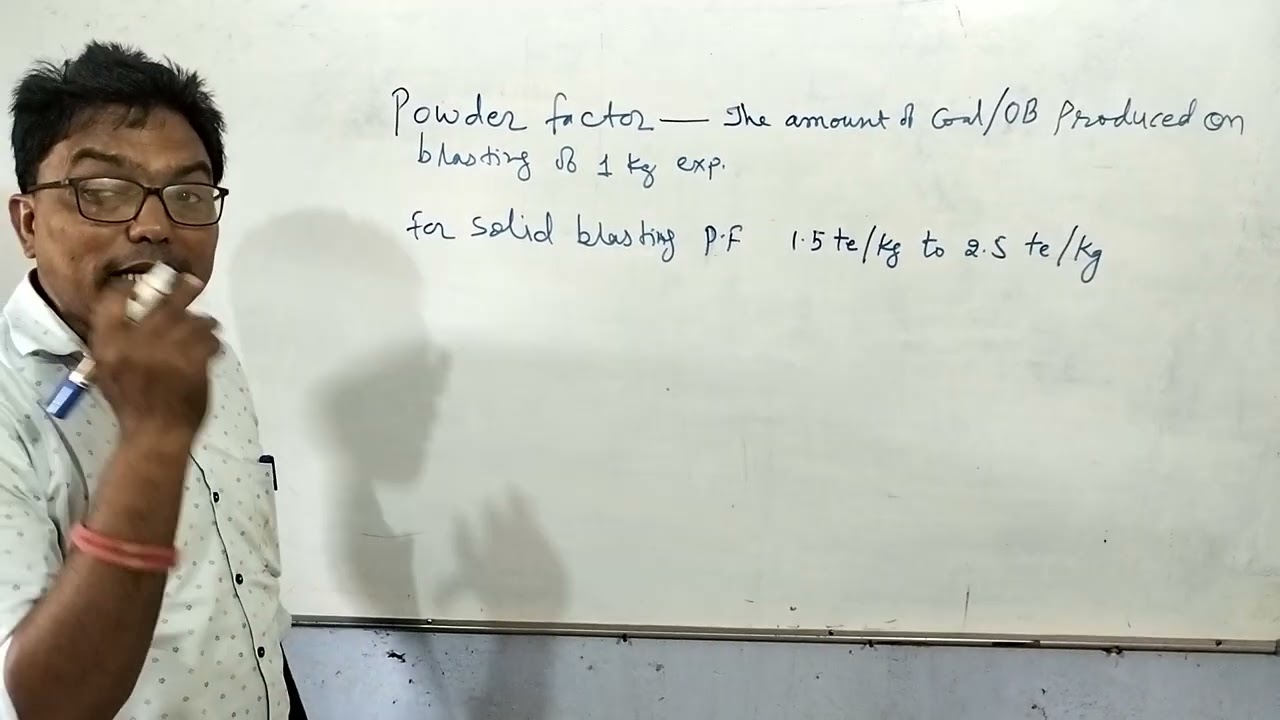 Powder factor — The amount of Coal/OB Produced on
blasting of 1 kg exp.
for solid blasting P.F 1.5 te/kg to 2.5 te/kg